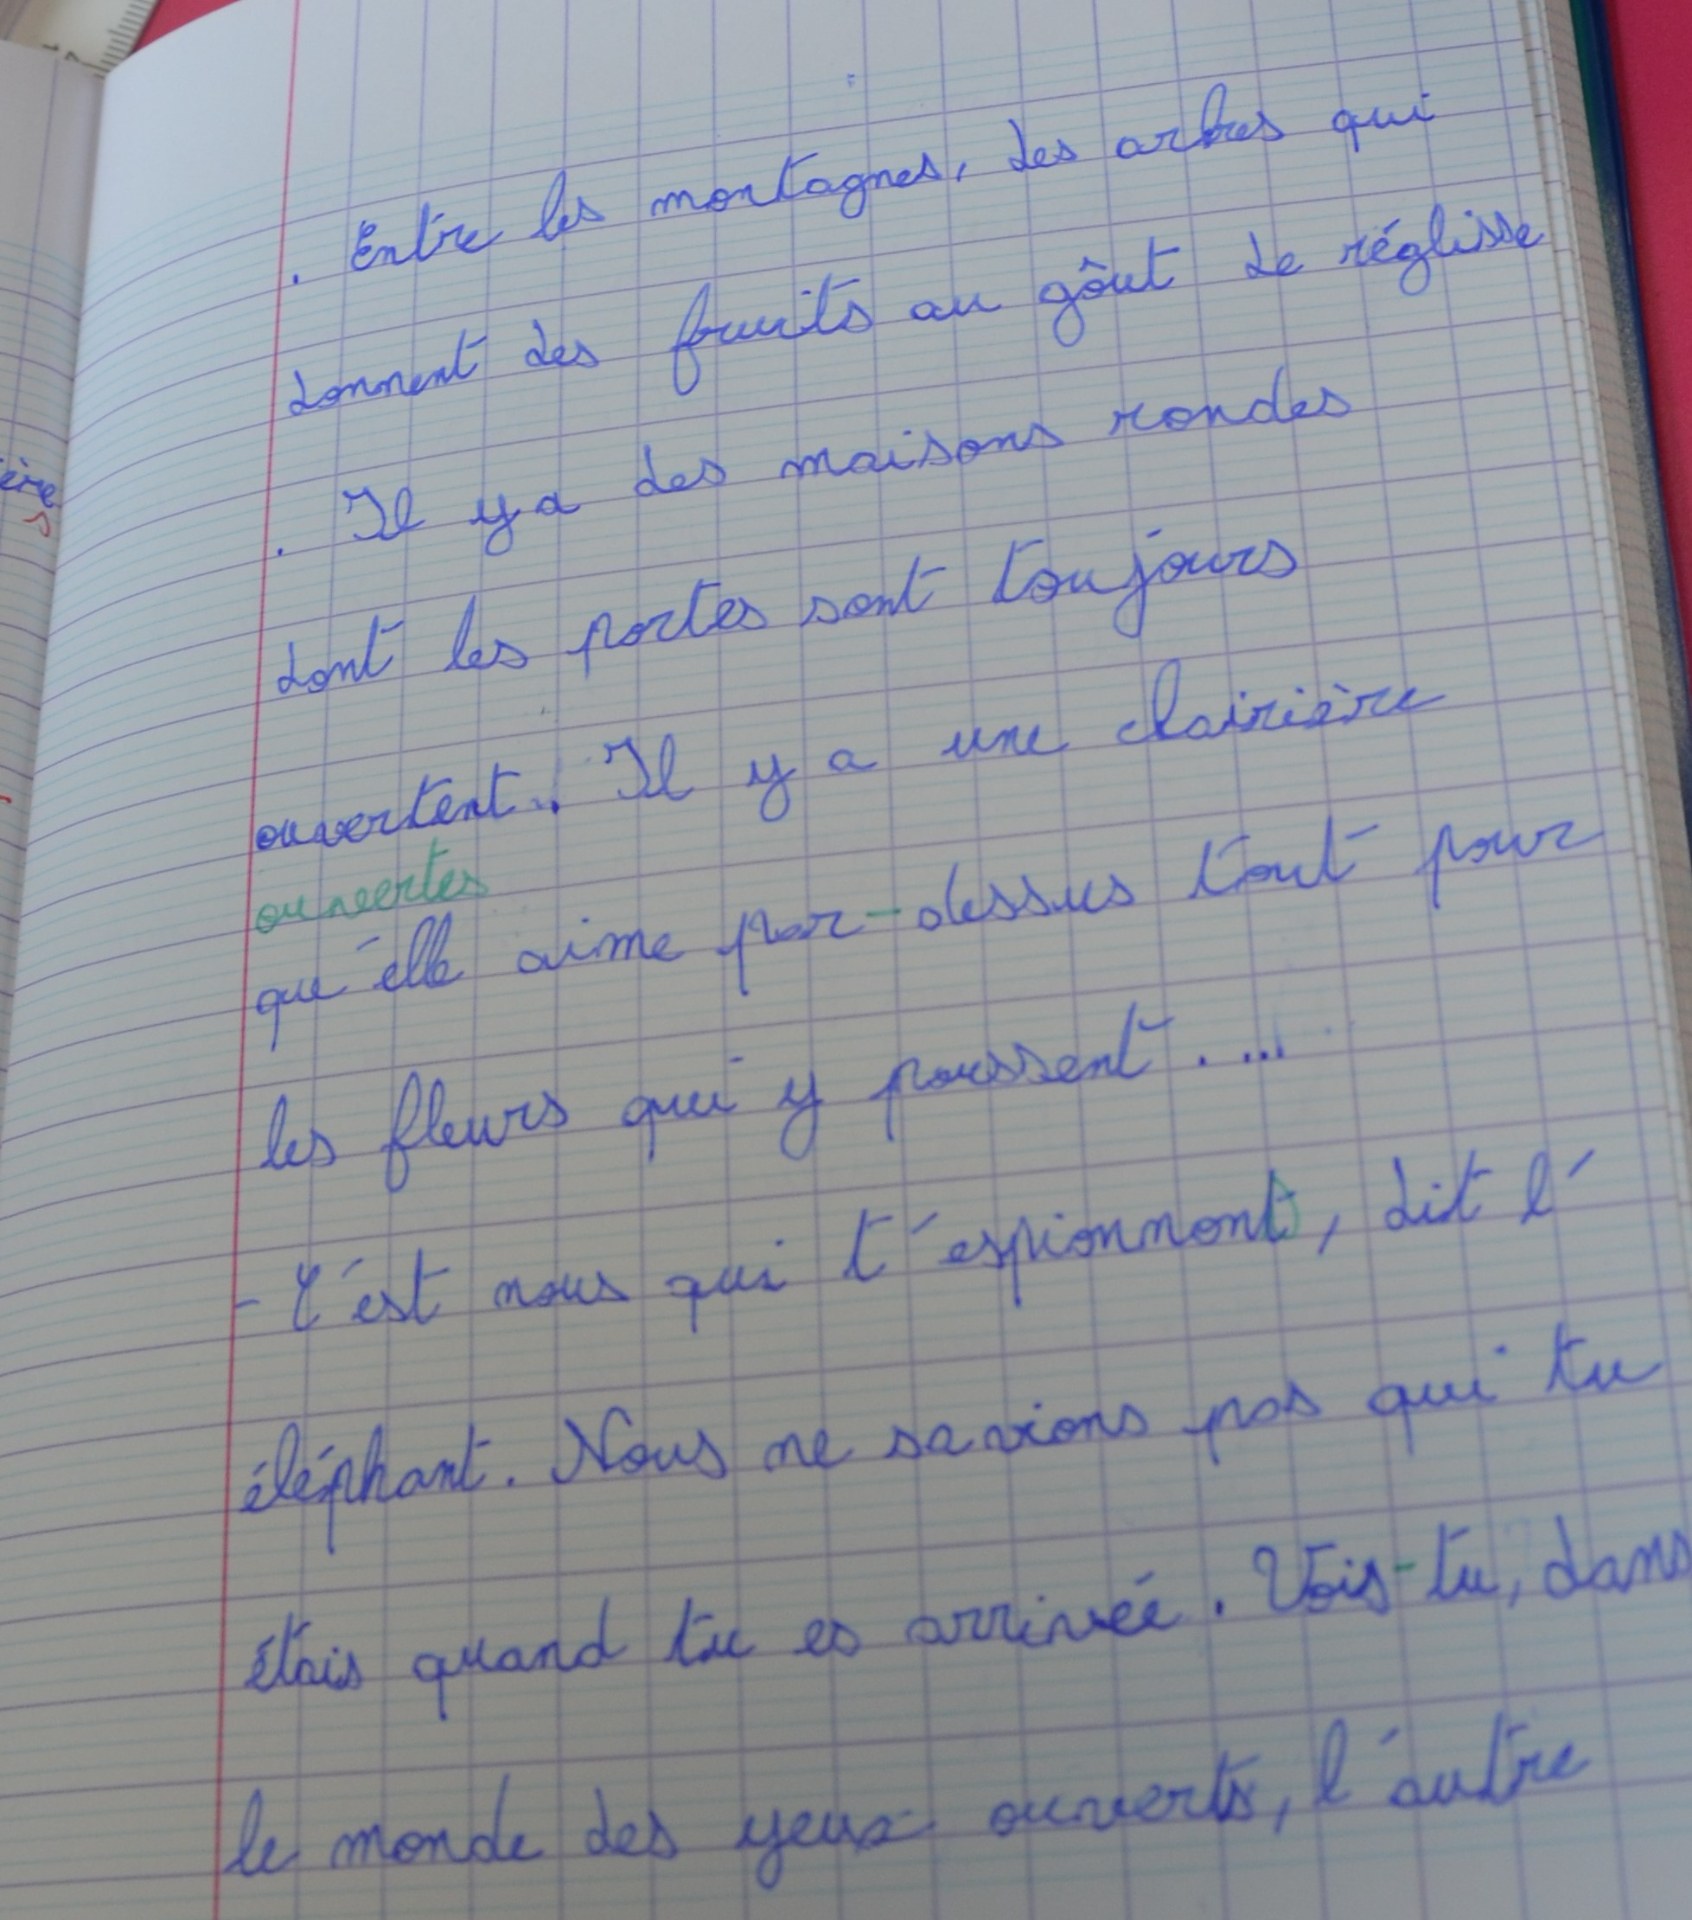 . Entre les montagnes, des arbres qui
donnent des fruits au gôut de réglisse
. Il y a des maisons rondes
dont les portes sont toujours
ouvertent. Il y a une clairière
ouvertes
qu'elle aime par-dessus tout pour
les fleurs qui y poussent....
- C'est nous qui t'espionnont, dit l'
éléphant. Nous ne savions pas qui tu
étais quand tu es arrivée. Vois-tu, dans
le monde des yeux ouverts, l'autre
ère
s